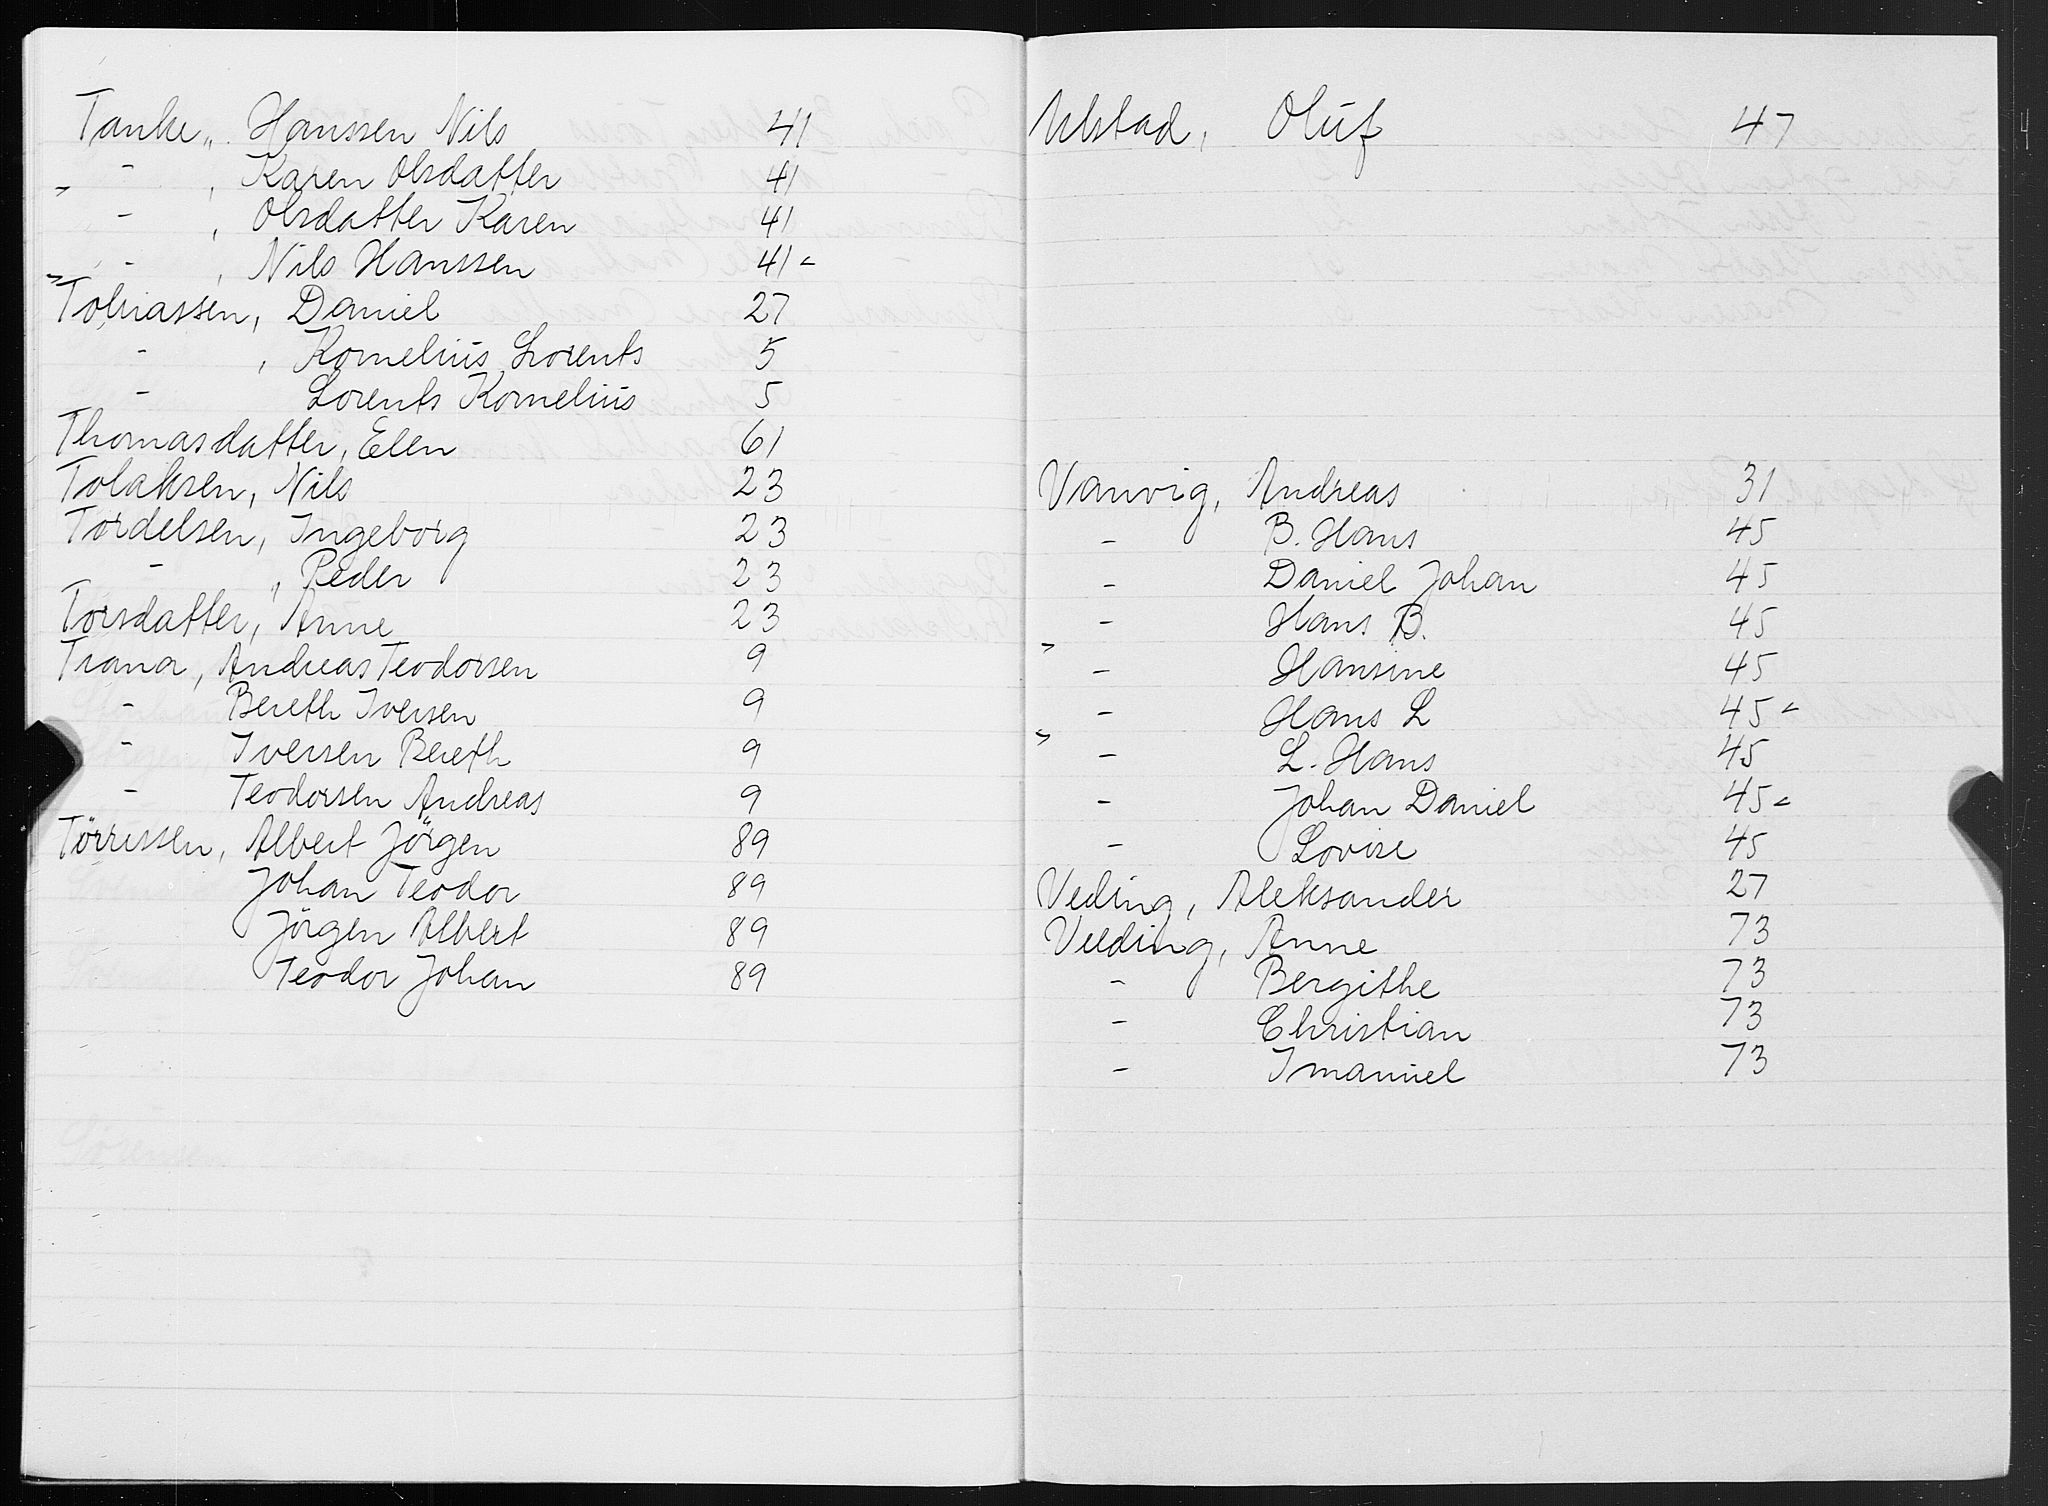 Tanke,, Hanssen Nils 41
" - , Karen Olsdatter 41
- , Olsdatter Karen 41
" - , Nils Hanssen 41 -
Tobiassen, Daniel 27
- , Kornelius Lorents 5
- Lorents Kornelius 5
Thomasdatter, Elen 61
Tolaksen, Nils 23
Tordelsen, Ingeborg 23
- , Peder 23
Torsdatter, Anne 23
Trana, Andreas Teodorsen 9
- Bereth Iversen 9
- Iversen Bereth 9
- Teodorsen Andreas 9
Törrissen, Albert Jörgen 89
Johan Teodor 89
Jörgen Albert 89
Teodor Johan 89
Ulstad, Oluf 47
Vanvig, Andreas 31
- B. Hans 45
- Daniel Johan 45
- Hans B. 45
" - Hansine 45
- Hans L 45 -
" - L. Hans 45
- Johan Daniel 45 -
- Lovise 45
Veding, Aleksander 27
Veeding, Anne 73
- Bergithe 73
- Christian 73
- Imanuel 73